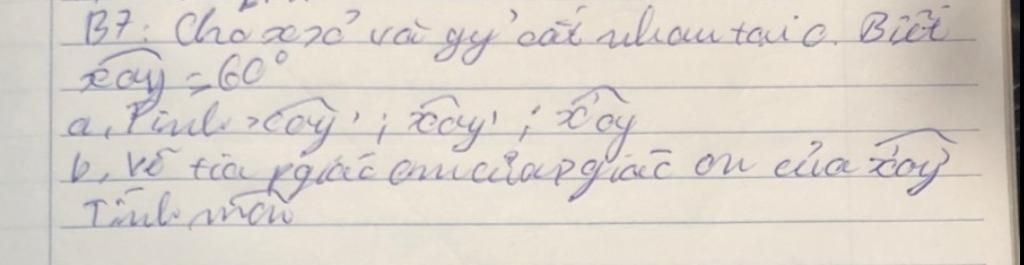 B7: Cho xx' và yy' cắt nhau tại o. Biết
xoy = 60°
a, Tính xoy' ; x'oy' ; x'oy
b, vẽ tia pgiác om của pgiác on của x'oy'
Tính mon